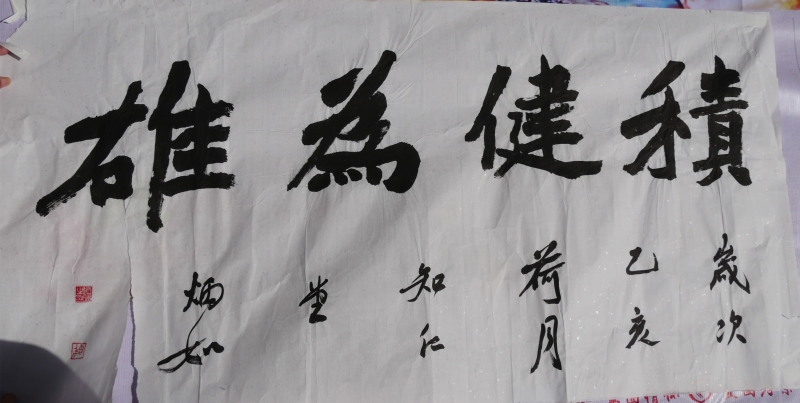 積健為雄
歲次
乙亥
荷月
知仁
堂
炳如